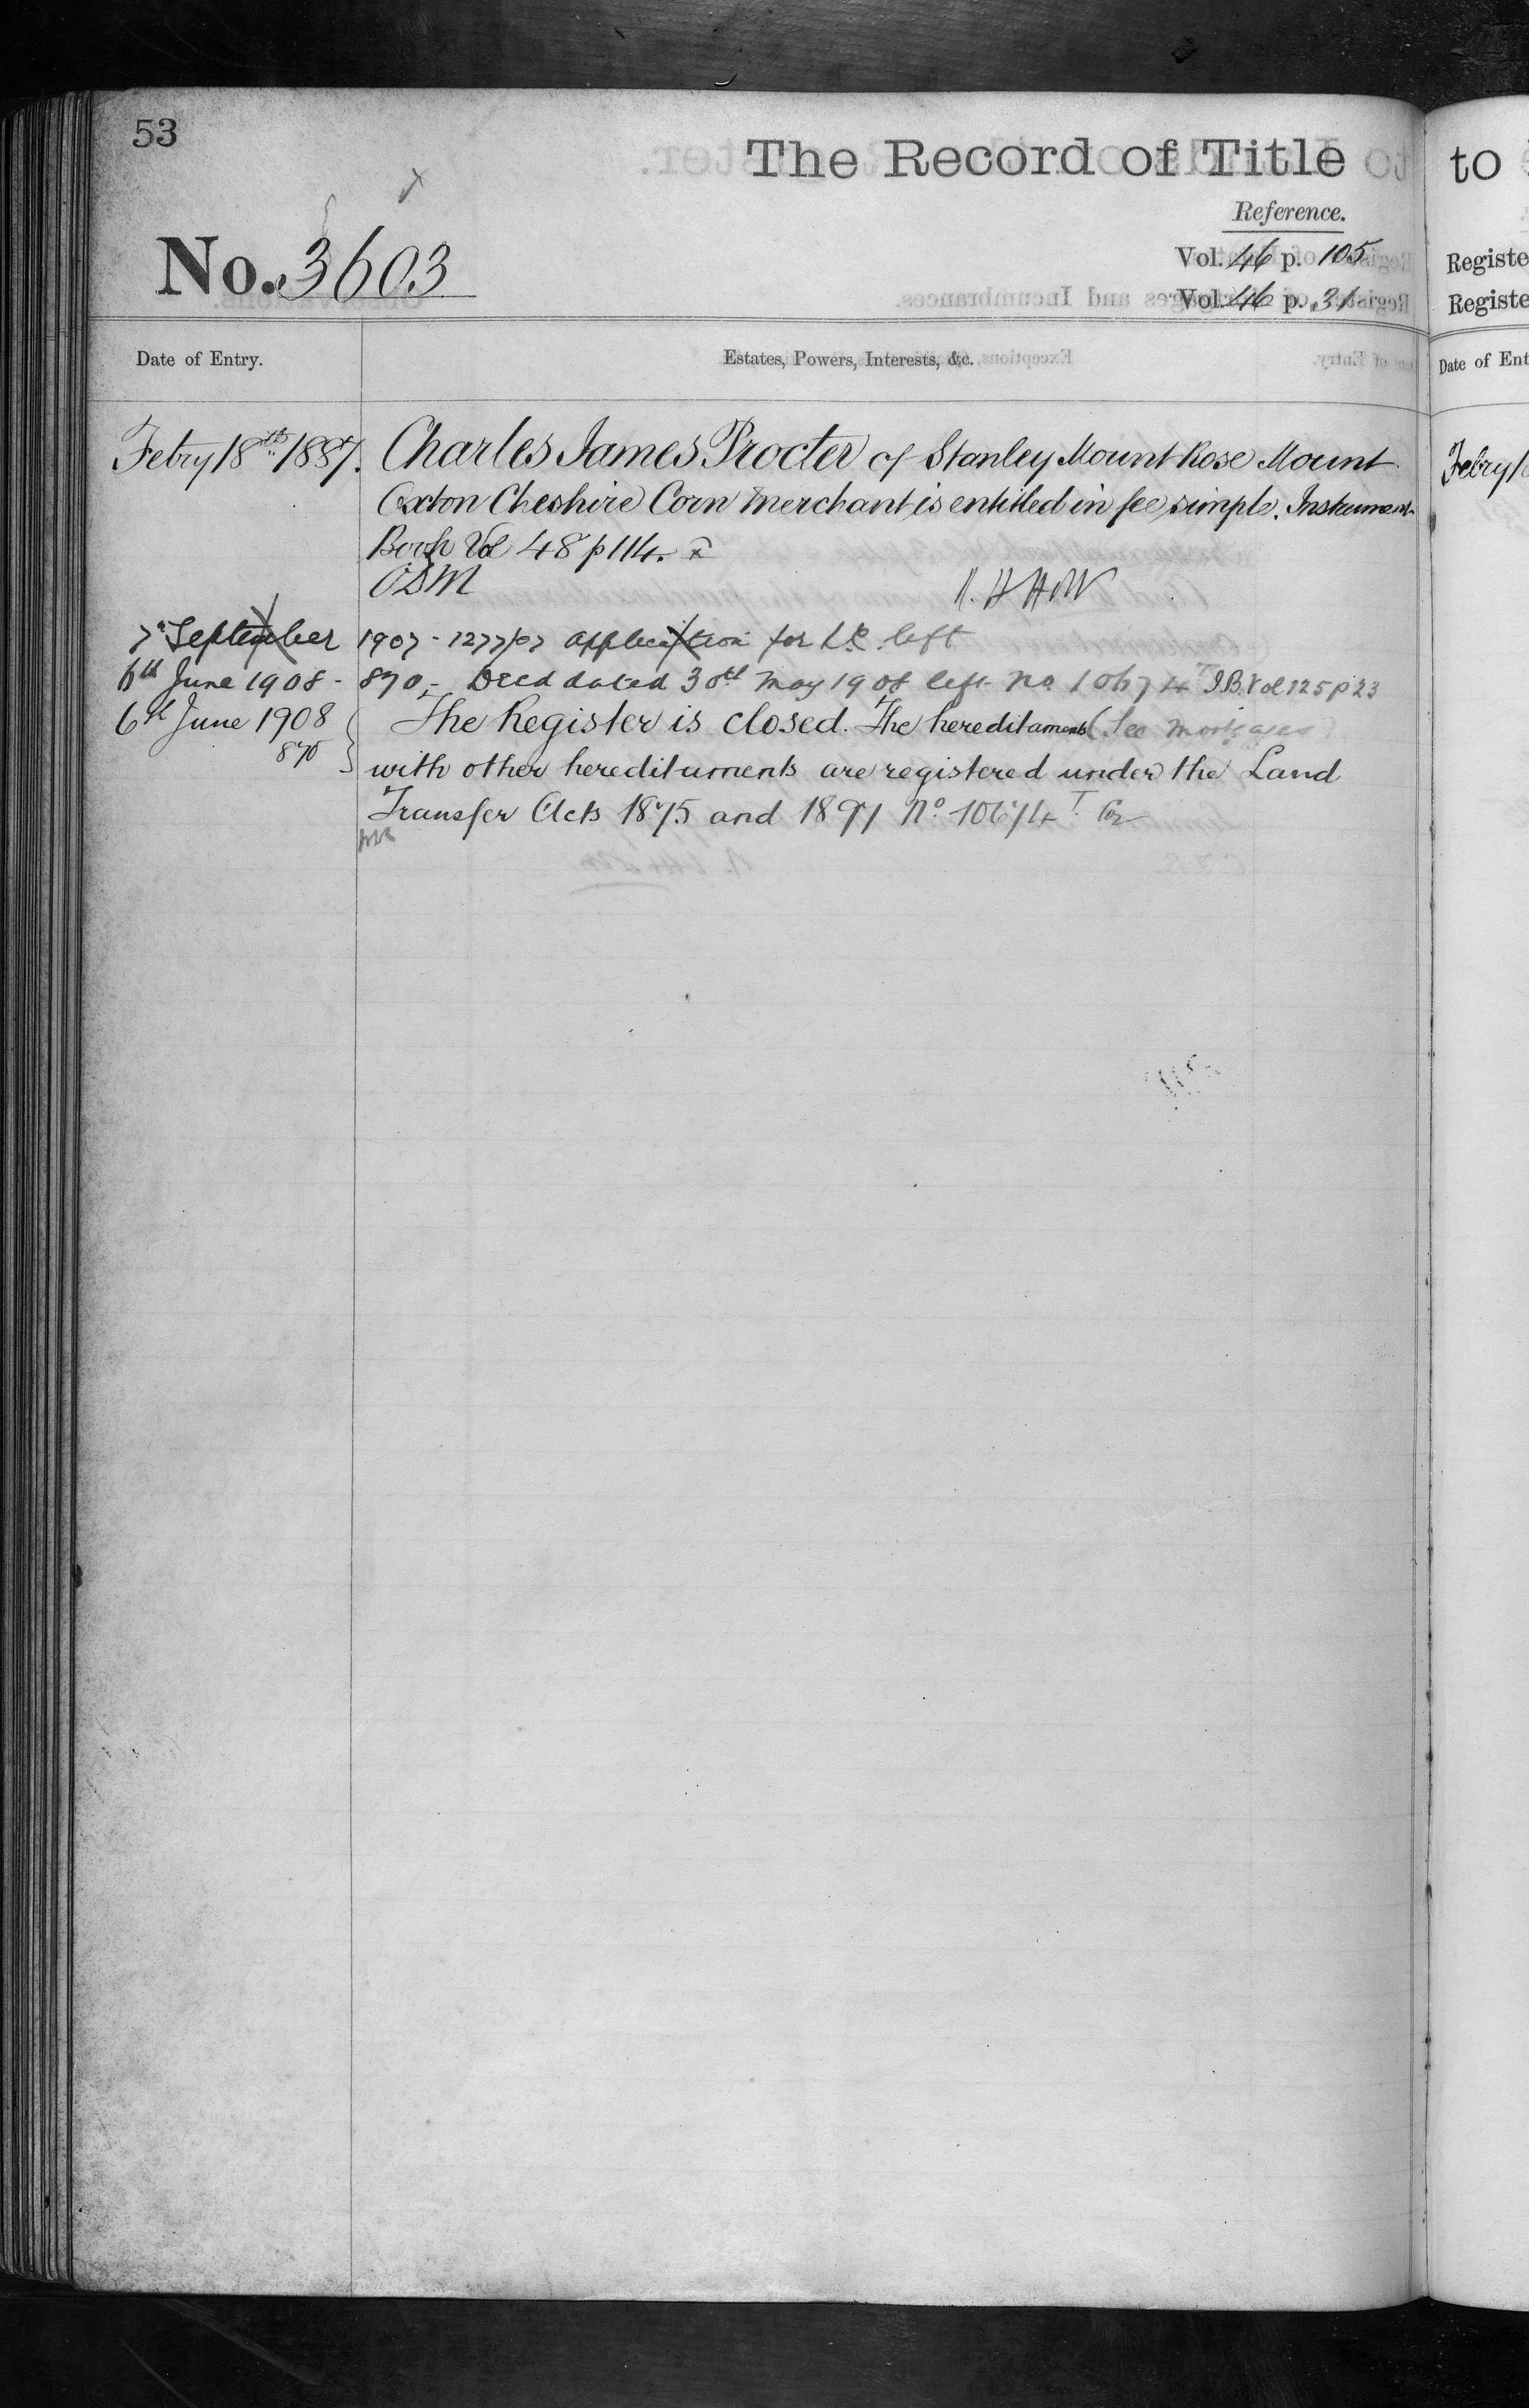 53
The Record of Title
to
Reference.
No. 3603
Vol. 46 p. 105
Vol. 46 p. 31
Registe
Registe
Date of Entry.
Estates, Powers, Interests, &c.
Date of Ent
Febry 18th 1887. Charles James Procter of Stanley Mount Rose Mount
Oxton Cheshire Corn Merchant is entitled in fee simple. Instrument
Book Vol 48 p 114.
7th September 1907 - 1277/07 application for L.C. left
6th June 1908 - 870 - Deed dated 30th May 1908 left No 10674 T I.B. Vol 125 p 23
6th June 1908 The Register is closed. The hereditaments (See Mortgages)
870
with other hereditaments are registered under the Land
Transfer Acts 1875 and 1897 No 10674 T
Febry 1